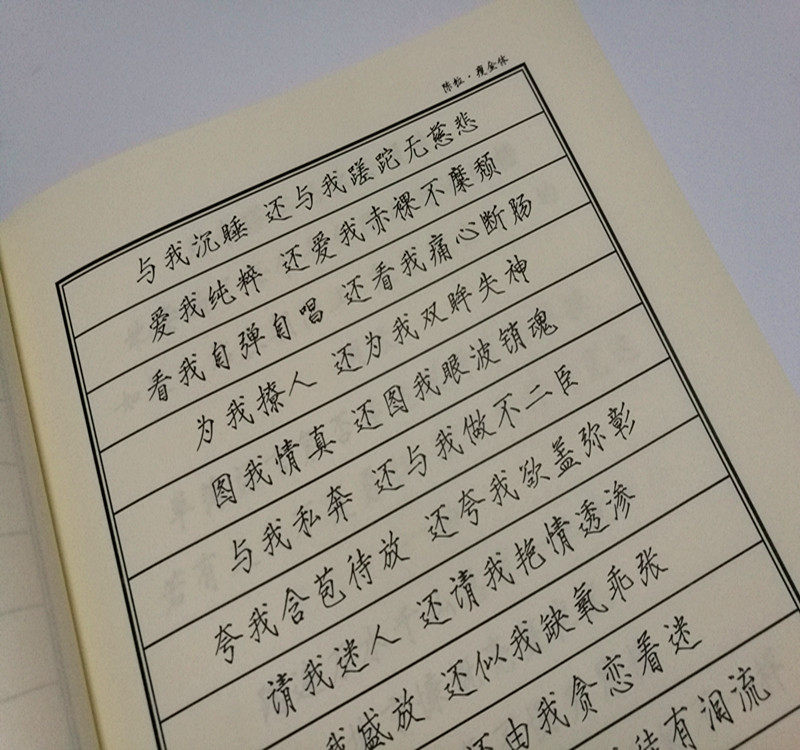 陈粒·瘦金体
与我沉睡 还与我蹉跎无慈悲
爱我纯粹 还爱我赤裸不糜颓
看我自弹自唱 还看我痛心断肠
为我撩人 还为我双眸失神
图我情真 还图我眼波销魂
与我私奔 还与我做不二臣
夸我含苞待放 还夸我欲盖弥彰
请我迷人 还请我艳情透渗
我盛放 还似我缺氧乖张
还由我贪恋着迷
有泪流